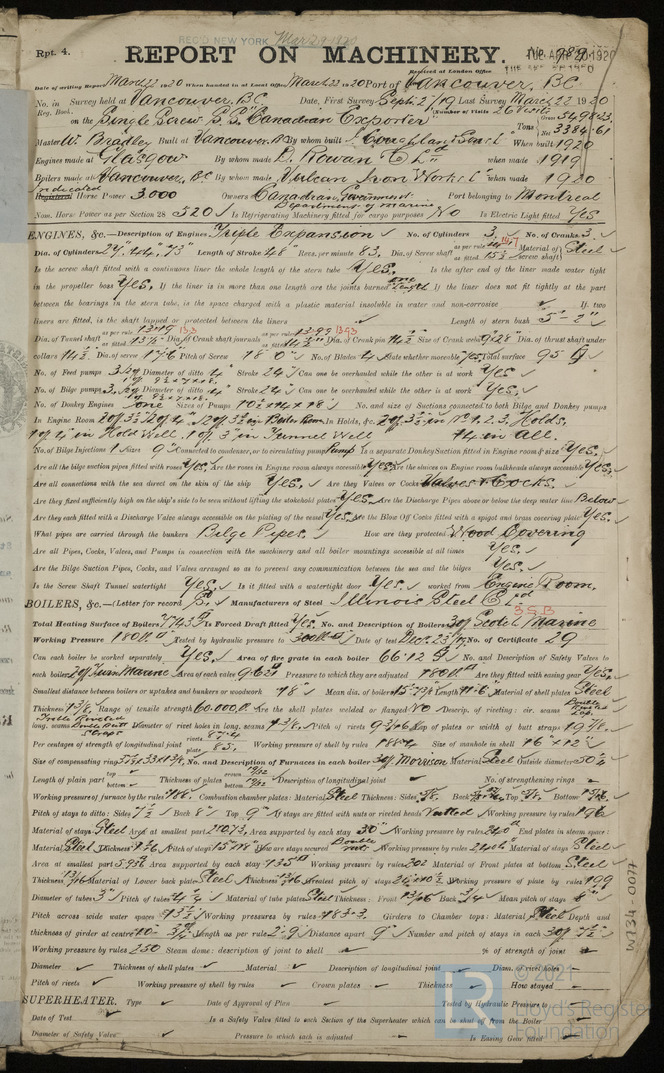 REC'D NEW YORK Mar 29 1920
Rpt. 4.
REPORT ON MACHINERY. No. TUE. APR. 20 1920
Received at London Office
Date of writing Report March 22 1920 When handed in at Local Office March 22 1920 Port of Vancouver, BC
No. in Survey held at Vancouver, B.C. Date, First Survey Sept. 2/19 Last Survey March 22 1920
Reg. Book. (Number of Visits 26 Visits
on the Single Screw S.S. "Canadian Exporter" Tons Gross 5498.23 Net 3384.61
Master W. Bradley Built at Vancouver, BC By whom built J. Coughlan & Sons When built 1920
Engines made at Glasgow By whom made D. Rowan & Co Ltd when made 1919
Boilers made at Vancouver, BC By whom made Vulcan Iron Works Ltd when made 1920
Indicated
Registered Horse Power 3.000 Owners Canadian Government Department of Marine Port belonging to Montreal
Nom. Horse Power as per Section 28 520 Is Refrigerating Machinery fitted for cargo purposes No Is Electric Light fitted Yes
ENGINES, &c.—Description of Engines Triple Expansion No. of Cylinders 3 No. of Cranks 3
Dia. of Cylinders 27", 44", 73" Length of Stroke 48" Revs. per minute 83 Dia. of Screw shaft as per rule as fitted 15½ Material of screw shaft Steel
Is the screw shaft fitted with a continuous liner the whole length of the stern tube Yes. Is the after end of the liner made water tight
in the propeller boss Yes. If the liner is in more than one length are the joints burned one length If the liner does not fit tightly at the part
between the bearings in the stern tube, is the space charged with a plastic material insoluble in water and non-corrosive If two
liners are fitted, is the shaft lapped or protected between the liners Length of stern bush 5' 2"
Dia. of Tunnel shaft as per rule 13.19 as fitted 13½ Dia. of Crank shaft journals as per rule 13.99 as fitted 14½ Dia. of Crank pin 14½ Size of Crank webs 9x28 Dia. of thrust shaft under
collars 14½ Dia. of screw 17'6 Pitch of Screw 18'0" No. of Blades 4 State whether moveable Yes Total surface 95
No. of Feed pumps 3 Diameter of ditto 4 Stroke 24 Can one be overhauled while the other is at work Yes.
No. of Bilge pumps 3 Diameter of ditto 4" Stroke 24 Can one be overhauled while the other is at work Yes.
No. of Donkey Engines one Sizes of Pumps 10½ x 14 x 18 No. and size of Suctions connected to both Bilge and Donkey pumps
In Engine Room 2 of 3½, 2 of 4", 2 of 3½ in Boiler Room In Holds, &c. 2 of 3½ in No 1. 2. 3. Holds,
1 of 4 in Hold Well, 1 of 3" in Tunnel Well 14 in All.
No. of Bilge Injections 1 Sizes 9 Connected to condenser, or to circulating pump Pump Is a separate Donkey Suction fitted in Engine room & size Yes.
Are all the bilge suction pipes fitted with roses Yes. Are the roses in Engine room always accessible Yes. Are the sluices on Engine room bulkheads always accessible Yes.
Are all connections with the sea direct on the skin of the ship Yes. Are they Valves or Cocks Valves & Cocks.
Are they fixed sufficiently high on the ship's side to be seen without lifting the stokehold plates Yes. Are the Discharge Pipes above or below the deep water line Below
Are they each fitted with a Discharge Valve always accessible on the plating of the vessel Yes. Are the Blow Off Cocks fitted with a spigot and brass covering plate Yes.
What pipes are carried through the bunkers Bilge Pipes. How are they protected Wood Covering
Are all Pipes, Cocks, Valves, and Pumps in connection with the machinery and all boiler mountings accessible at all times Yes.
Are the Bilge Suction Pipes, Cocks, and Valves arranged so as to prevent any communication between the sea and the bilges Yes.
Is the Screw Shaft Tunnel watertight Yes. Is it fitted with a watertight door Yes. worked from Engine Room.
BOILERS, &c.—(Letter for record S. Manufacturers of Steel Illinois Steel Co.
3 S.B
Total Heating Surface of Boilers 7743 Is Forced Draft fitted Yes. No. and Description of Boilers 3 of Scotch Marine
Working Pressure 180 Tested by hydraulic pressure to 300 Date of test Dec. 23/19 No. of Certificate 29
Can each boiler be worked separately Yes. Area of fire grate in each boiler 66.12 No. and Description of Safety Valves to
each boiler 2 of Twin Marine Area of each valve 9.62 Pressure to which they are adjusted 180 Are they fitted with easing gear Yes.
Smallest distance between boilers or uptakes and bunkers or woodwork 18" Mean dia. of boilers 15'-7¾ Length 11'-6 Material of shell plates Steel
Thickness 1 3/8 Range of tensile strength 60.000 Are the shell plates welded or flanged No Descrip. of riveting: cir. seams Double Riveted Lap
long. seams Treble Riveted Double Butt Straps Diameter of rivet holes in long. seams 1 3/8 Pitch of rivets 9 3/16 Lap of plates or width of butt straps 19 7/8
Per centages of strength of longitudinal joint rivets 87.4 plate 85. Working pressure of shell by rules 188 Size of manhole in shell 16" x 12"
Size of compensating ring No. and Description of Furnaces in each boiler 3 of Morrison Material Steel Outside diameter 50½
Length of plain part top bottom Thickness of plates crown 19/32 bottom 19/32 Description of longitudinal joint No. of strengthening rings
Working pressure of furnace by the rules 188 Combustion chamber plates: Material Steel Thickness: Sides Back Top Bottom
Pitch of stays to ditto: Sides 7½ Back 8" Top 9" If stays are fitted with nuts or riveted heads Nutted Working pressure by rules 196
Material of stays Steel Area at smallest part 2.073 Area supported by each stay 30" Working pressure by rules 240 End plates in steam space:
Material Steel Thickness Pitch of stays 15 x 18 How are stays secured Double nuts Working pressure by rules Material of stays Steel
Area at smallest part 5.936 Area supported by each stay 135 Working pressure by rules 202 Material of Front plates at bottom Steel
Thickness 13/16 Material of Lower back plate Steel Thickness 13/16 Greatest pitch of stays Working pressure of plate by rules 199
Diameter of tubes 3" Pitch of tubes 4¼ Material of tube plates Steel Thickness: Front 13/16 Back 3/4 Mean pitch of stays
Pitch across wide water spaces 13½ Working pressures by rules 183.3 Girders to Chamber tops: Material Steel Depth and
thickness of girder at centre 10 - 3/4 Length as per rule 2'9 Distance apart 9" Number and pitch of stays in each 3 of 7½
Working pressure by rules 250 Steam dome: description of joint to shell % of strength of joint
Diameter Thickness of shell plates Material Description of longitudinal joint Diam. of rivet holes
Pitch of rivets Working pressure of shell by rules Crown plates Thickness How stayed
SUPERHEATER. Type Date of Approval of Plan Tested by Hydraulic Pressure to
Date of Test Is a Safety Valve fitted to each Section of the Superheater which can be shut off from the Boiler
Diameter of Safety Valve Pressure to which each is adjusted Is Easing Gear fitted
W734-0077
© 2021
Lloyd's Register
Foundation